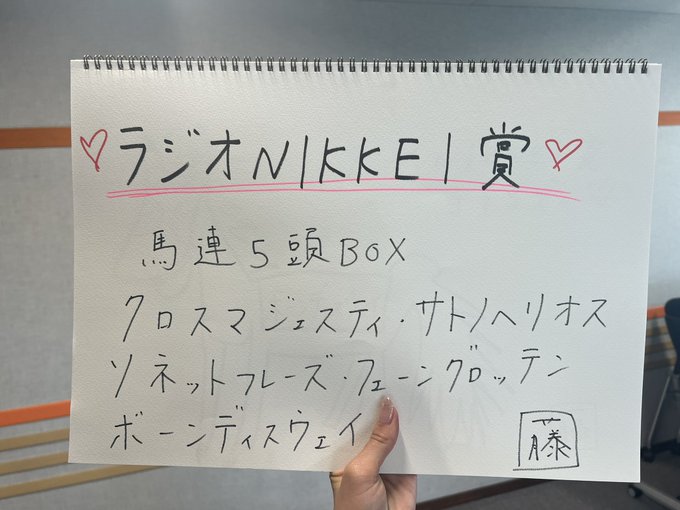 ラジオNIKKEI賞
馬連5頭BOX
クロスマジェスティ・サトノヘリオス
ソネットフレーズ・フェーングロッテン
ボーンディスウェイ
藤